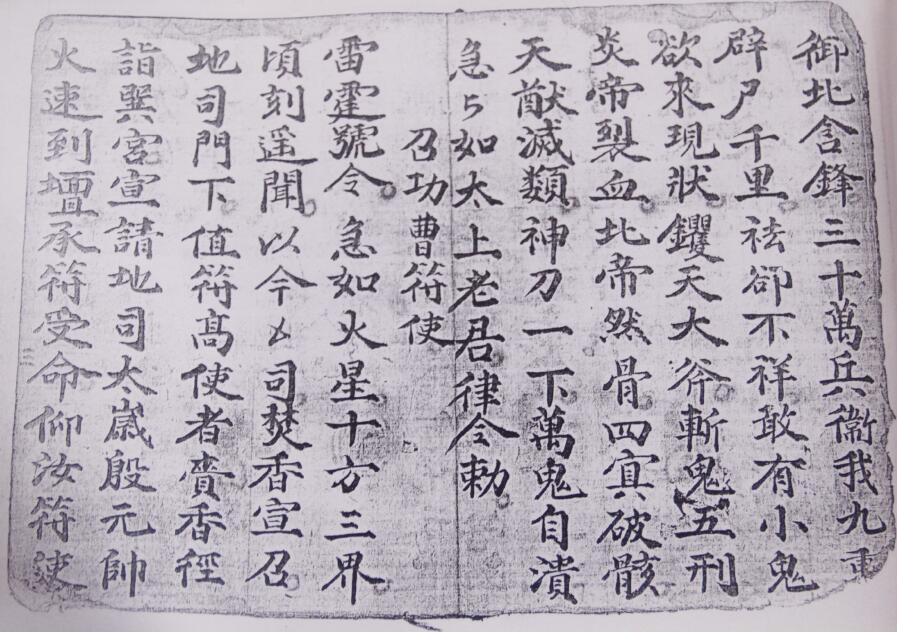 御北含鋒三十萬兵衞我九重
辟尸千里祛郤不祥敢有小鬼
欲來現狀钁天大斧斬鬼五刑
炎帝裂血北帝然骨四㝠破骸
天猷滅類神刀一下萬鬼自潰
急々如太上老君律令勅
召功曹符使
雷霆號令急如火星十方三界
頃刻遥聞以今厶司焚香宣召
地司門下值符髙使者賫香徑
詣巽宮宣請地司太歲殷元帥
火速到壇承符受命仰汝符使